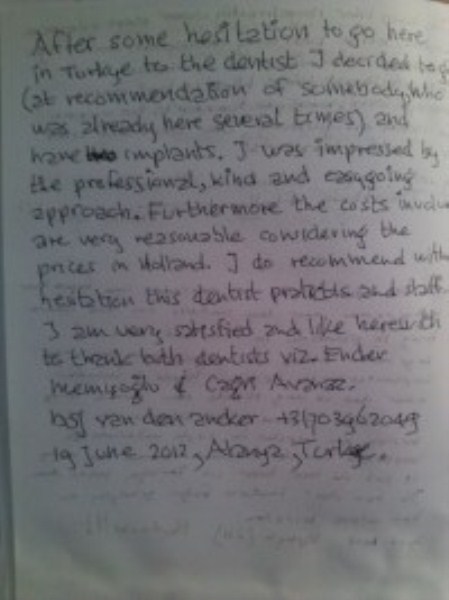 After some hesitation to go here
in Turkye to the dentist I decided to g
(at recommendation of somebody, who
was already here several times) and
have implants. I was impressed by
the professional, kind and easygoing
approach. Furthermore the costs involv
are very reasonable considering the
prices in Holland. I do recommend with
hesitation this dentist and staff.
I am very satisfied and like herewith
to thank both dentists viz. Ender
&
van den
19 June 2012, Alanya, Turkye.